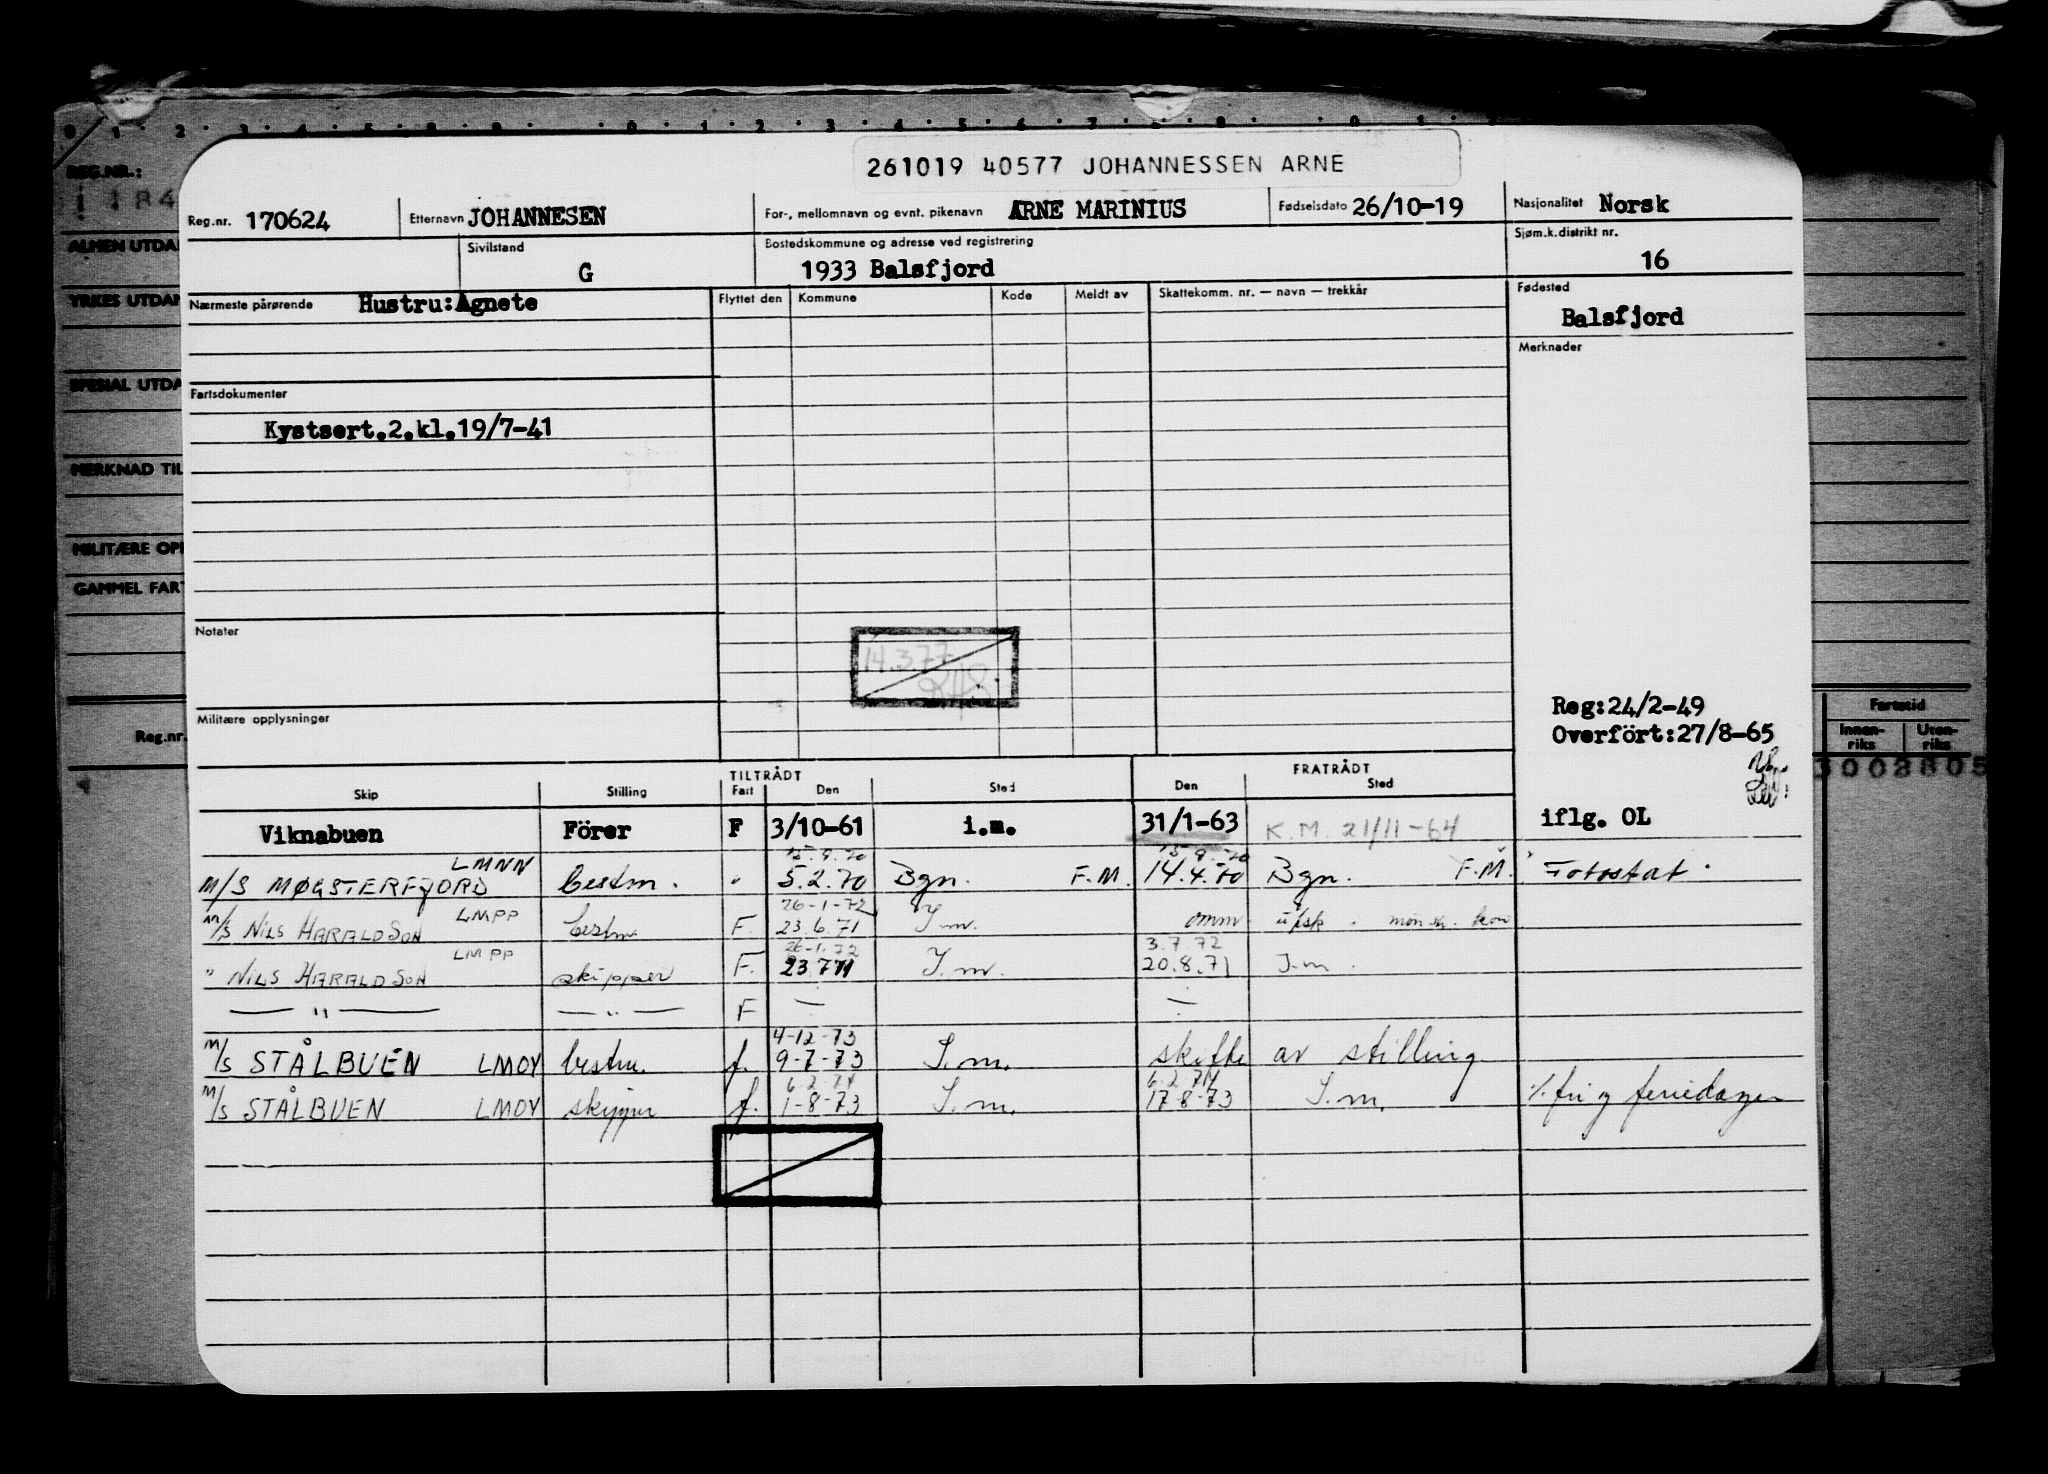 0 1 2 3 4 5 0 1 2 3 4 5 6 7 8 9 0 1
261019 40577 JOHANNESSEN ARNE
REG.NR.:
Reg.nr. 170624 Etternavn JOHANNESEN For-, mellomnavn og evnt. pikenavn ARNE MARINIUS Fødselsdato 26/10-19 Nasjonalitet Norsk
ALMEN UTDA
Sivilstand G Bostedskommune og adresse ved registrering 1933 Balsfjord Sjøm.k.distrikt nr. 16
YRKES UTDAN
Nærmeste pårørende Hustru:Agnete Flyttet den Kommune Kode Meldt av Skattekomm. nr. — navn — trekkår Fødested
Balsfjord
Merknader
SPESIAL UTDA
Fartsdokumenter
Kystsert.2.kl.19/7-41
MERKNAD TIL
MILITÆRE OPP
GAMMEL FART
Notater
14.3.77
Militære opplysninger
Reg:24/2-49
Overfört:27/8-65
Reg.nr.
Fartstid
Innen-riks Uten-riks
3002805
TILTRÅDT FRATRÅDT
Skip Stilling Fart Den Sted Den Sted
Viknabuen Förer F 3/10-61 i.m. 31/1-63 K.M. 21/11-64 iflg. OL
LMNN 15.9.70 15.9.70
M/S MØGSTERFJORD bestm. " 5.2.70 Bgn. F.M. 14.4.70 Bgn. F.M. Fotostat.
LMPP 26-1-72
M/S NILS HARALDSON bestm. F. 23.6.71 I.m. omm. u/sk. mønstr. kon
LMPP 26-1.72 3.7 72
" NILS HARALDSON skipper F. 23.7 71 I.m. 20.8.71 I.m.
— " — — " — F — —
4-12-73
M/S STÅLBUEN LMOY bestm. f. 9-7-73 I.m. skifte av stilling
6.2.74 6.2.74
M/S STÅLBUEN LMOY skipper f. 1-8-73 I.m. 17-8-73 I.m. %fri og feriedager